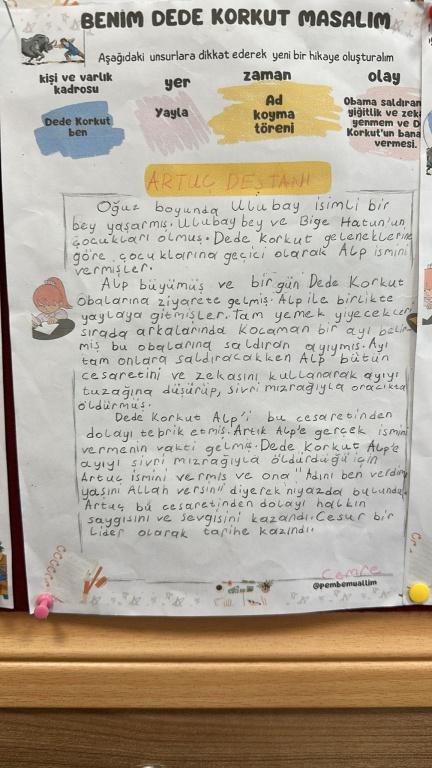 BENİM DEDE KORKUT MASALIM
Aşağıdaki unsurlara dikkat ederek yeni bir hikaye oluşturalım
kişi ve varlık
kadrosu
yer
zaman
olay
Dede Korkut
ben
Yayla
Ad
koyma
töreni
Obama saldıran
yiğitlik ve zek
yenmem ve D
Korkut'un bana
vermesi.
ARTUÇ DESTANI
Oğuz boyunda Ulubay isimli bir
bey yaşarmış. Ulubay bey ve Bige Hatun'un
çocukları olmuş. Dede Korkut geleneklerine
göre çocuklarına geçici olarak Alp ismini
vermişler.
Alp büyümüş ve bir gün Dede Korkut
obalarına ziyarete gelmiş. Alp ile birlikte
yaylaya gitmişler. Tam yemek yiyecekler
sırada arkalarında kocaman bir ayı belir
miş bu obalarına saldıran ayıymış. Ayı
tam onlara saldıracakken Alp bütün
cesaretini ve zekasını kullanarak ayıyı
tuzağına düşürüp, sivri mızrağıyla oracıkta
öldürmüş.
Dede Korkut Alp'i bu cesaretinden
dolayı tebrik etmiş. Artık Alp'e gerçek ismini
vermenin vakti gelmiş. Dede Korkut Alp'e
ayıyı sivri mızrağıyla öldürdüğü için
Artuç ismini vermiş ve ona "Adını ben verdim
yaşını Allah versin" diyerek niyazda bulundu.
Artuç bu cesaretinden dolayı halkın
saygısını ve sevgisini kazandı. Cesur bir
lider olarak tarihe kazındı.
Cemre
@pembemuallim